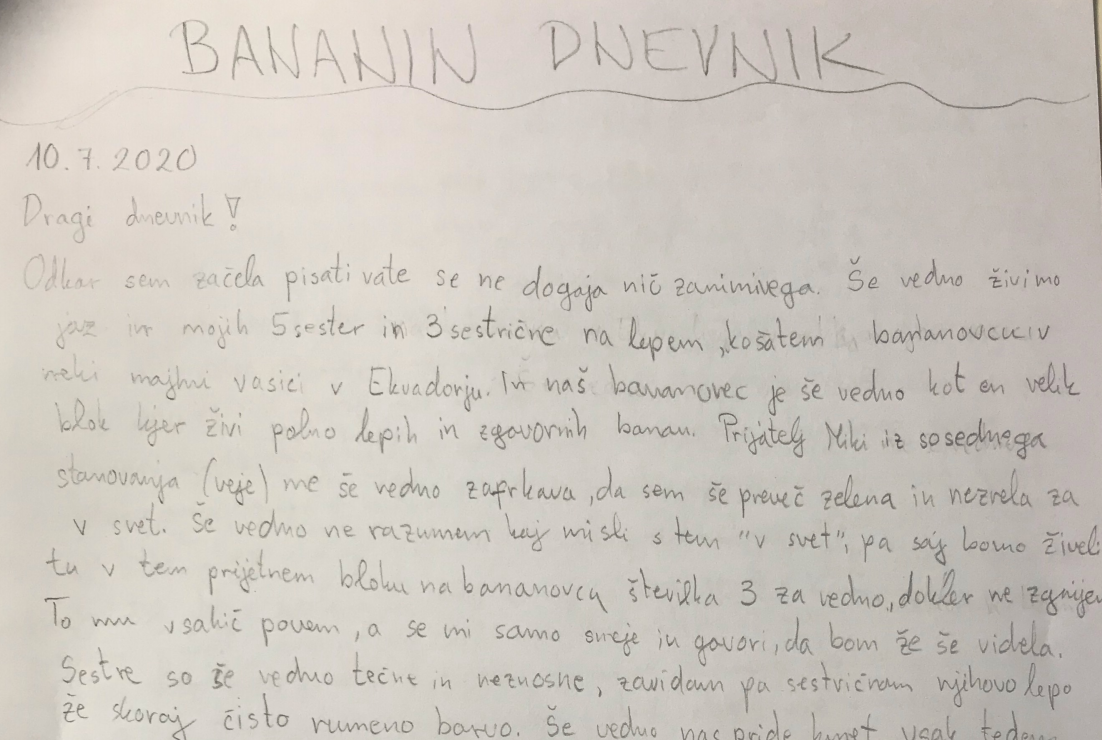 BANANIN DNEVNIK
10.7.2020
Dragi dnevnik!
Odkar sem začela pisati vate se ne dogaja nič zanimivega. Še vedno živimo
jaz in mojih 5 sester in 3 sestrične na lepem, košatem bananovcu v
neki majhni vasici v Ekvadorju. In naš bananovec je še vedno kot en velik
blok kjer živi polno lepih in zgovornih banan. Prijatelj Miki iz sosednega
stanovanja (veje) me še vedno zafrkava, da sem še preveč zelena in nezrela za
v svet. Še vedno ne razumem kaj misli s tem "v svet", pa saj bomo živeli
tu v tem prijetnem bloku na bananovcu številka 3 za vedno, dokler ne zgnijem
To mu vsakič povem, a se mi samo smeje in govori, da bom že še videla.
Sestre so še vedno tečne in neznosne, zavidam pa sestričnam njihovo lepo
že skoraj čisto rumeno barvo. Še vedno nas pride kmet vsak teden